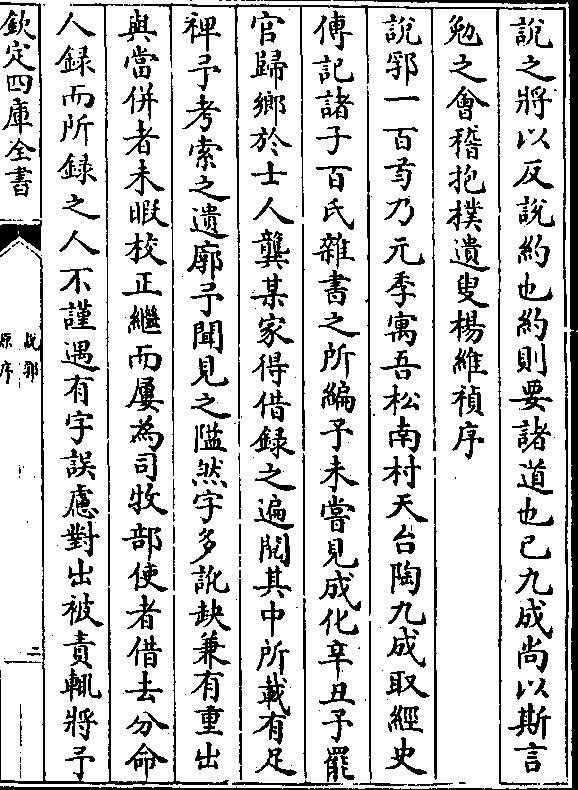 說之將以反說約也約則要諸道也已九成尚以斯言
勉之會稽抱樸遺叟楊維禎序
說郛一百𢎥乃元季寓吾松南村天台陶九成取經史
傳記諸子百氏雜書之所編予未嘗見成化辛丑予罷
官歸鄉於士人龔某家得借錄之遍閱其中所載有足
裨予考索之遺廓予聞見之隘然字多訛缺兼有重出
與當併者未暇校正繼而屢為司牧部使者借去分命
人録而所録之人不謹遇有字誤慮對出被責輒將予
欽定四庫全書
說郛
原序
二